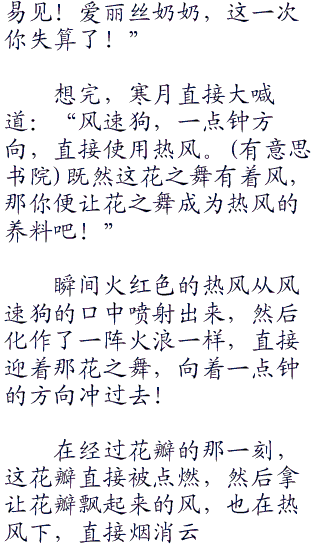 易见！爱丽丝奶奶，这一次
你失算了！”
想完，寒月直接大喊
道：“风速狗，一点钟方
向，直接使用热风。(有意思
书院)既然这花之舞有着风，
那你便让花之舞成为热风的
养料吧！”
瞬间火红色的热风从风
速狗的口中喷射出来，然后
化作了一阵火浪一样，直接
迎着那花之舞，向着一点钟
的方向冲过去！
在经过花瓣的那一刻，
这花瓣直接被点燃，然后拿
让花瓣飘起来的风，也在热
风下，直接烟消云